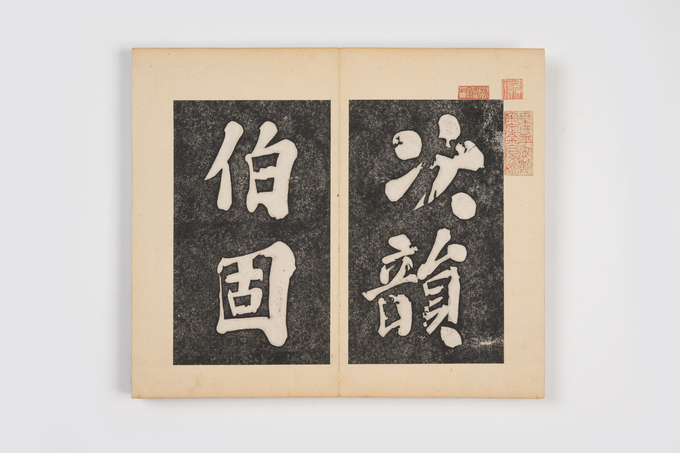 次韻
伯固